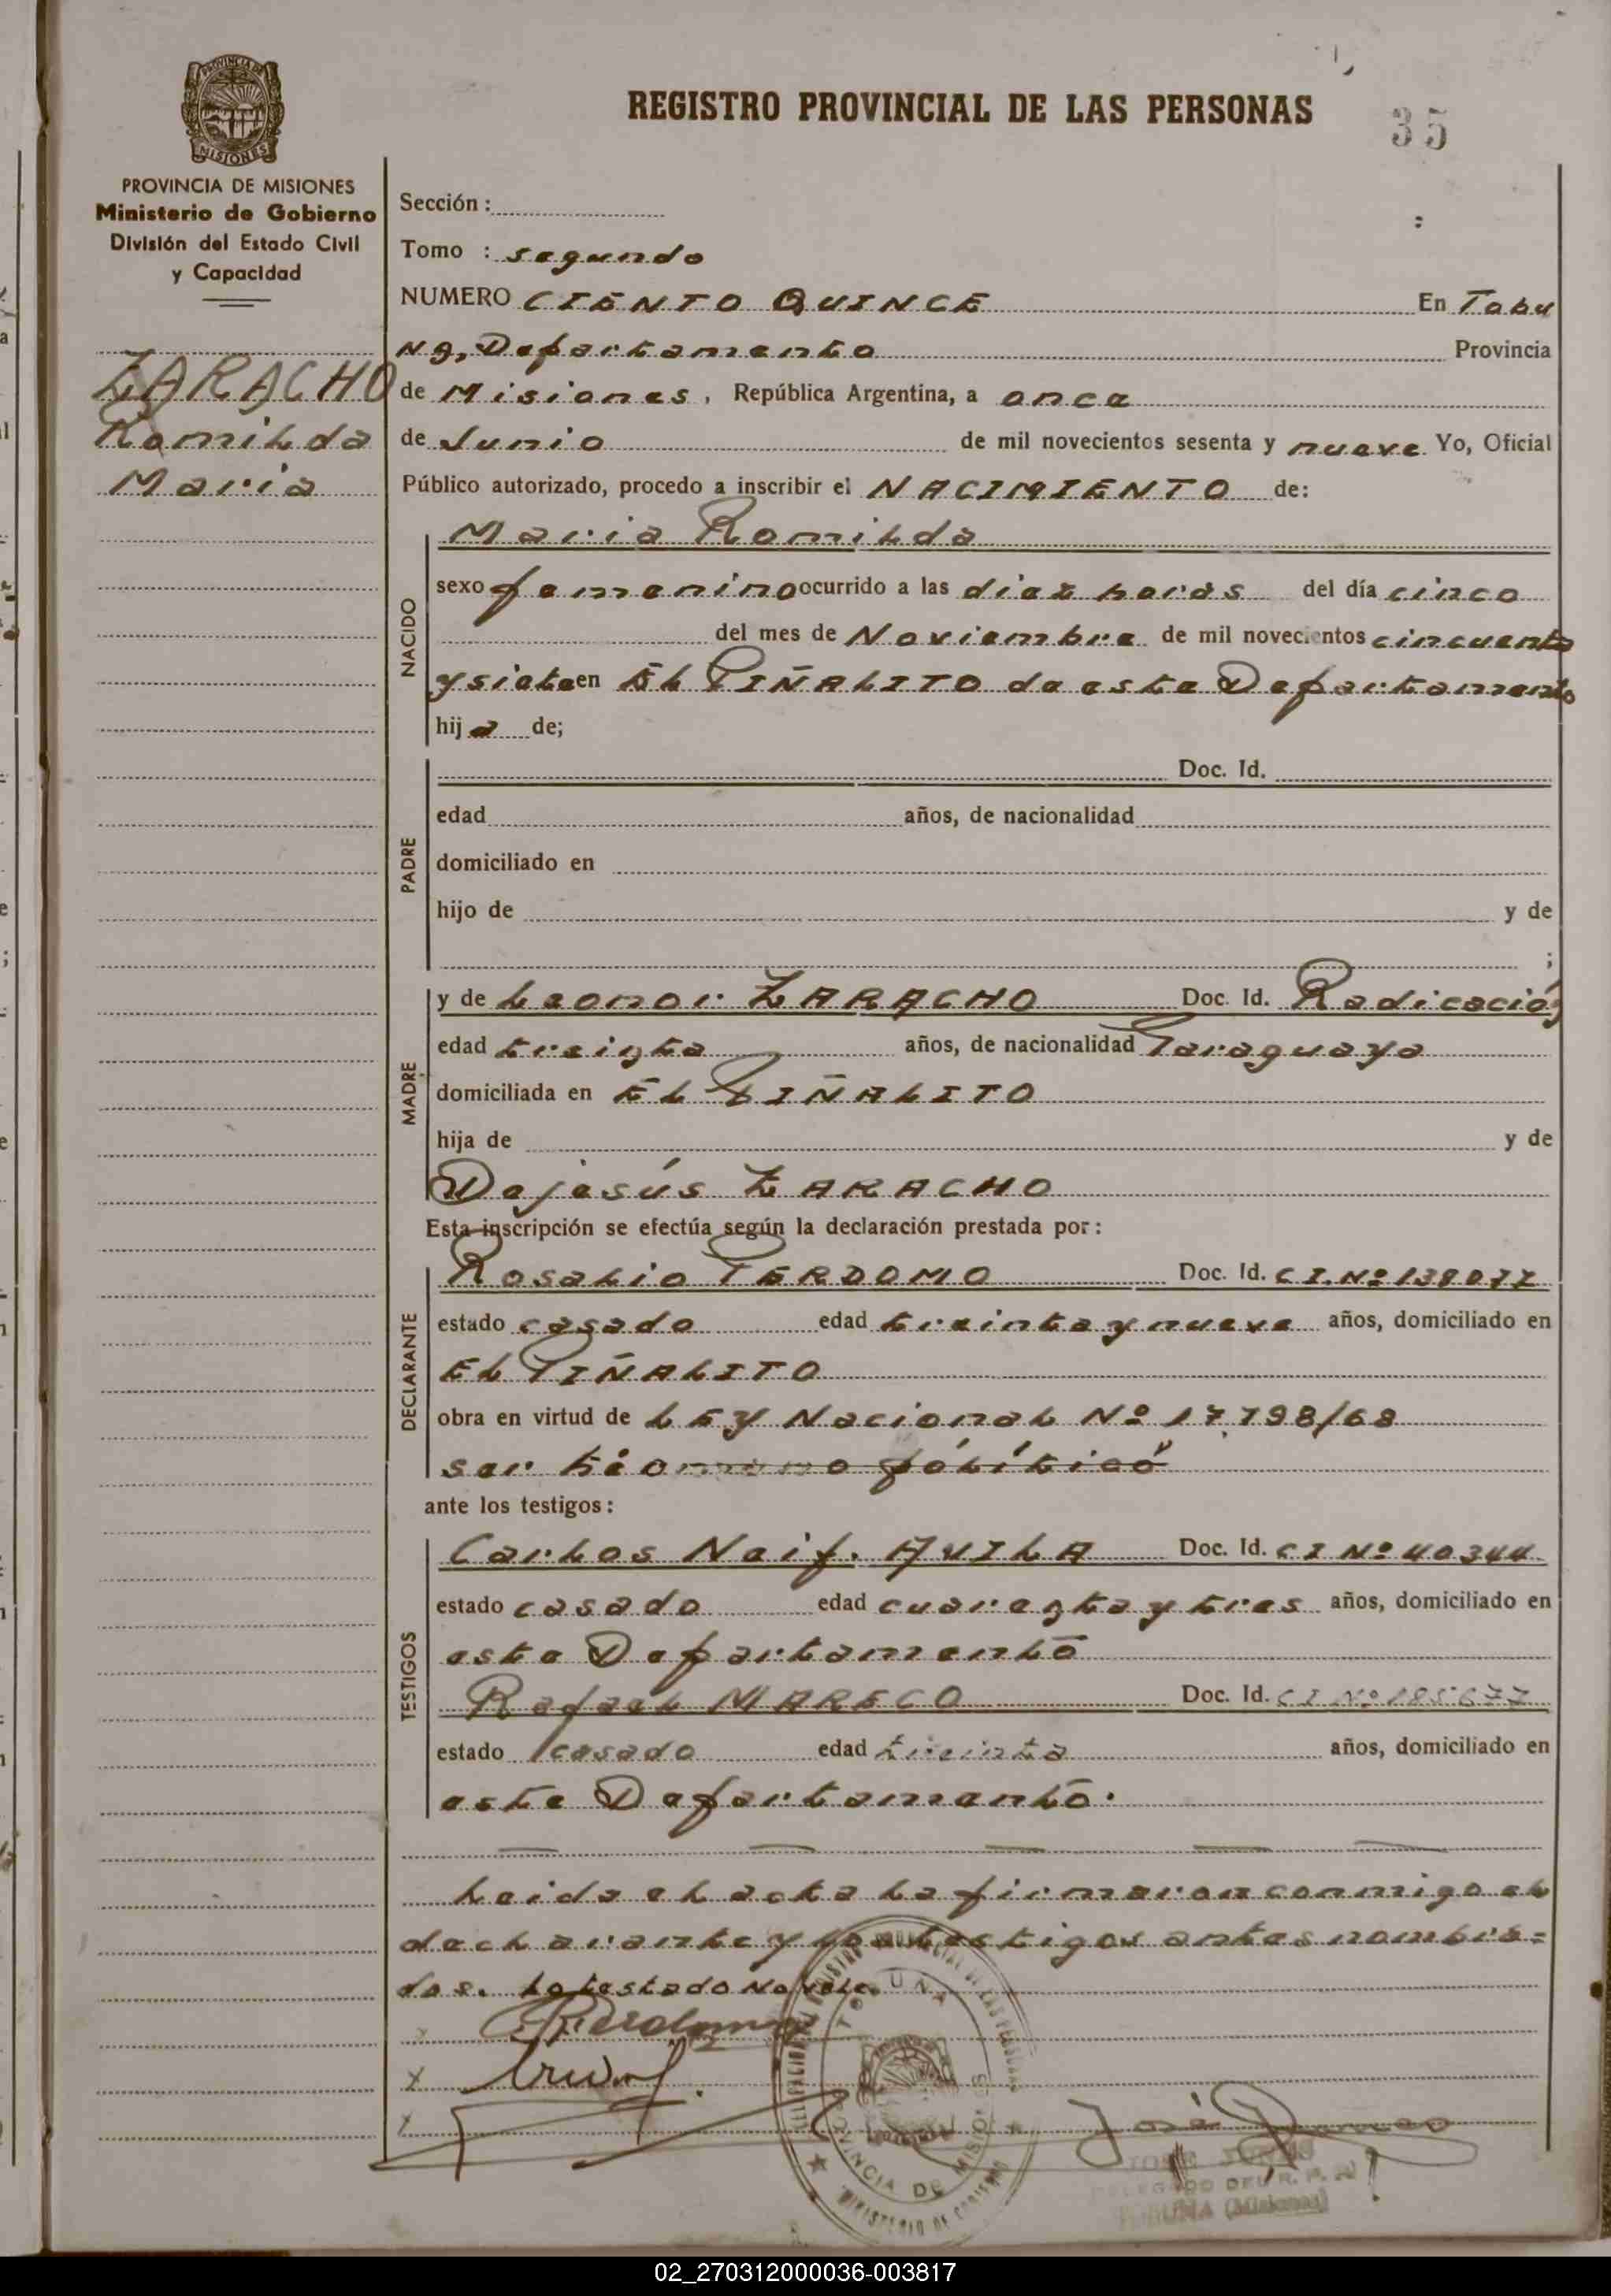 REGISTRO PROVINCIAL DE LAS PERSONAS
35
PROVINCIA DE MISIONES
MISIONES
PROVINCIA DE MISIONES
Ministerio de Gobierno
División del Estado Civil
y Capacidad
ZARACHO
Romilda
Maria
Sección :
Tomo : segundo
NUMERO CIENTO QUINCE En Tobu
na, Departamento Provincia
de Misiones, República Argentina, a once
de Junio de mil novecientos sesenta y nueve Yo, Oficial
Público autorizado, procedo a inscribir el NACIMIENTO de:
NACIDO
Maria Romilda
sexo femenino ocurrido a las diez horas del día cinco
del mes de Noviembre de mil novecientos cincuenta
y siete en EL PIÑALITO de este Departamento
hija de;
PADRE
Doc. Id.
edad años, de nacionalidad
domiciliado en
hijo de y de
;
MADRE
y de Leonor ZARACHO Doc. Id. Radicación
edad treinta años, de nacionalidad Paraguaya
domiciliada en EL PIÑALITO
hija de y de
Dejesús ZARACHO
Esta inscripción se efectúa según la declaración prestada por :
DECLARANTE
Rosalio PERDOMO Doc. Id. C I. Nº 138077
estado casado edad treinta y nueve años, domiciliado en
EL PIÑALITO
obra en virtud de LEY Nacional Nº 17.798/68
ser tio político
ante los testigos :
TESTIGOS
Carlos Naif. AVILA Doc. Id. C I Nº 40344
estado casado edad cuarenta y tres años, domiciliado en
este Departamento
Rafael MARECO Doc. Id. C I Nº 185677
estado casado edad treinta años, domiciliado en
este Departamento.
Leida el acta la firmaron conmigo el
declarante y los testigos antes nombra=
dos. Lo testado No vale.
PROVINCIA DE MISIONES
MINISTERIO DE GOBIERNO
DELEGADO DEL R. P.
TOBUNA (Misiones)
02_270312000036-003817